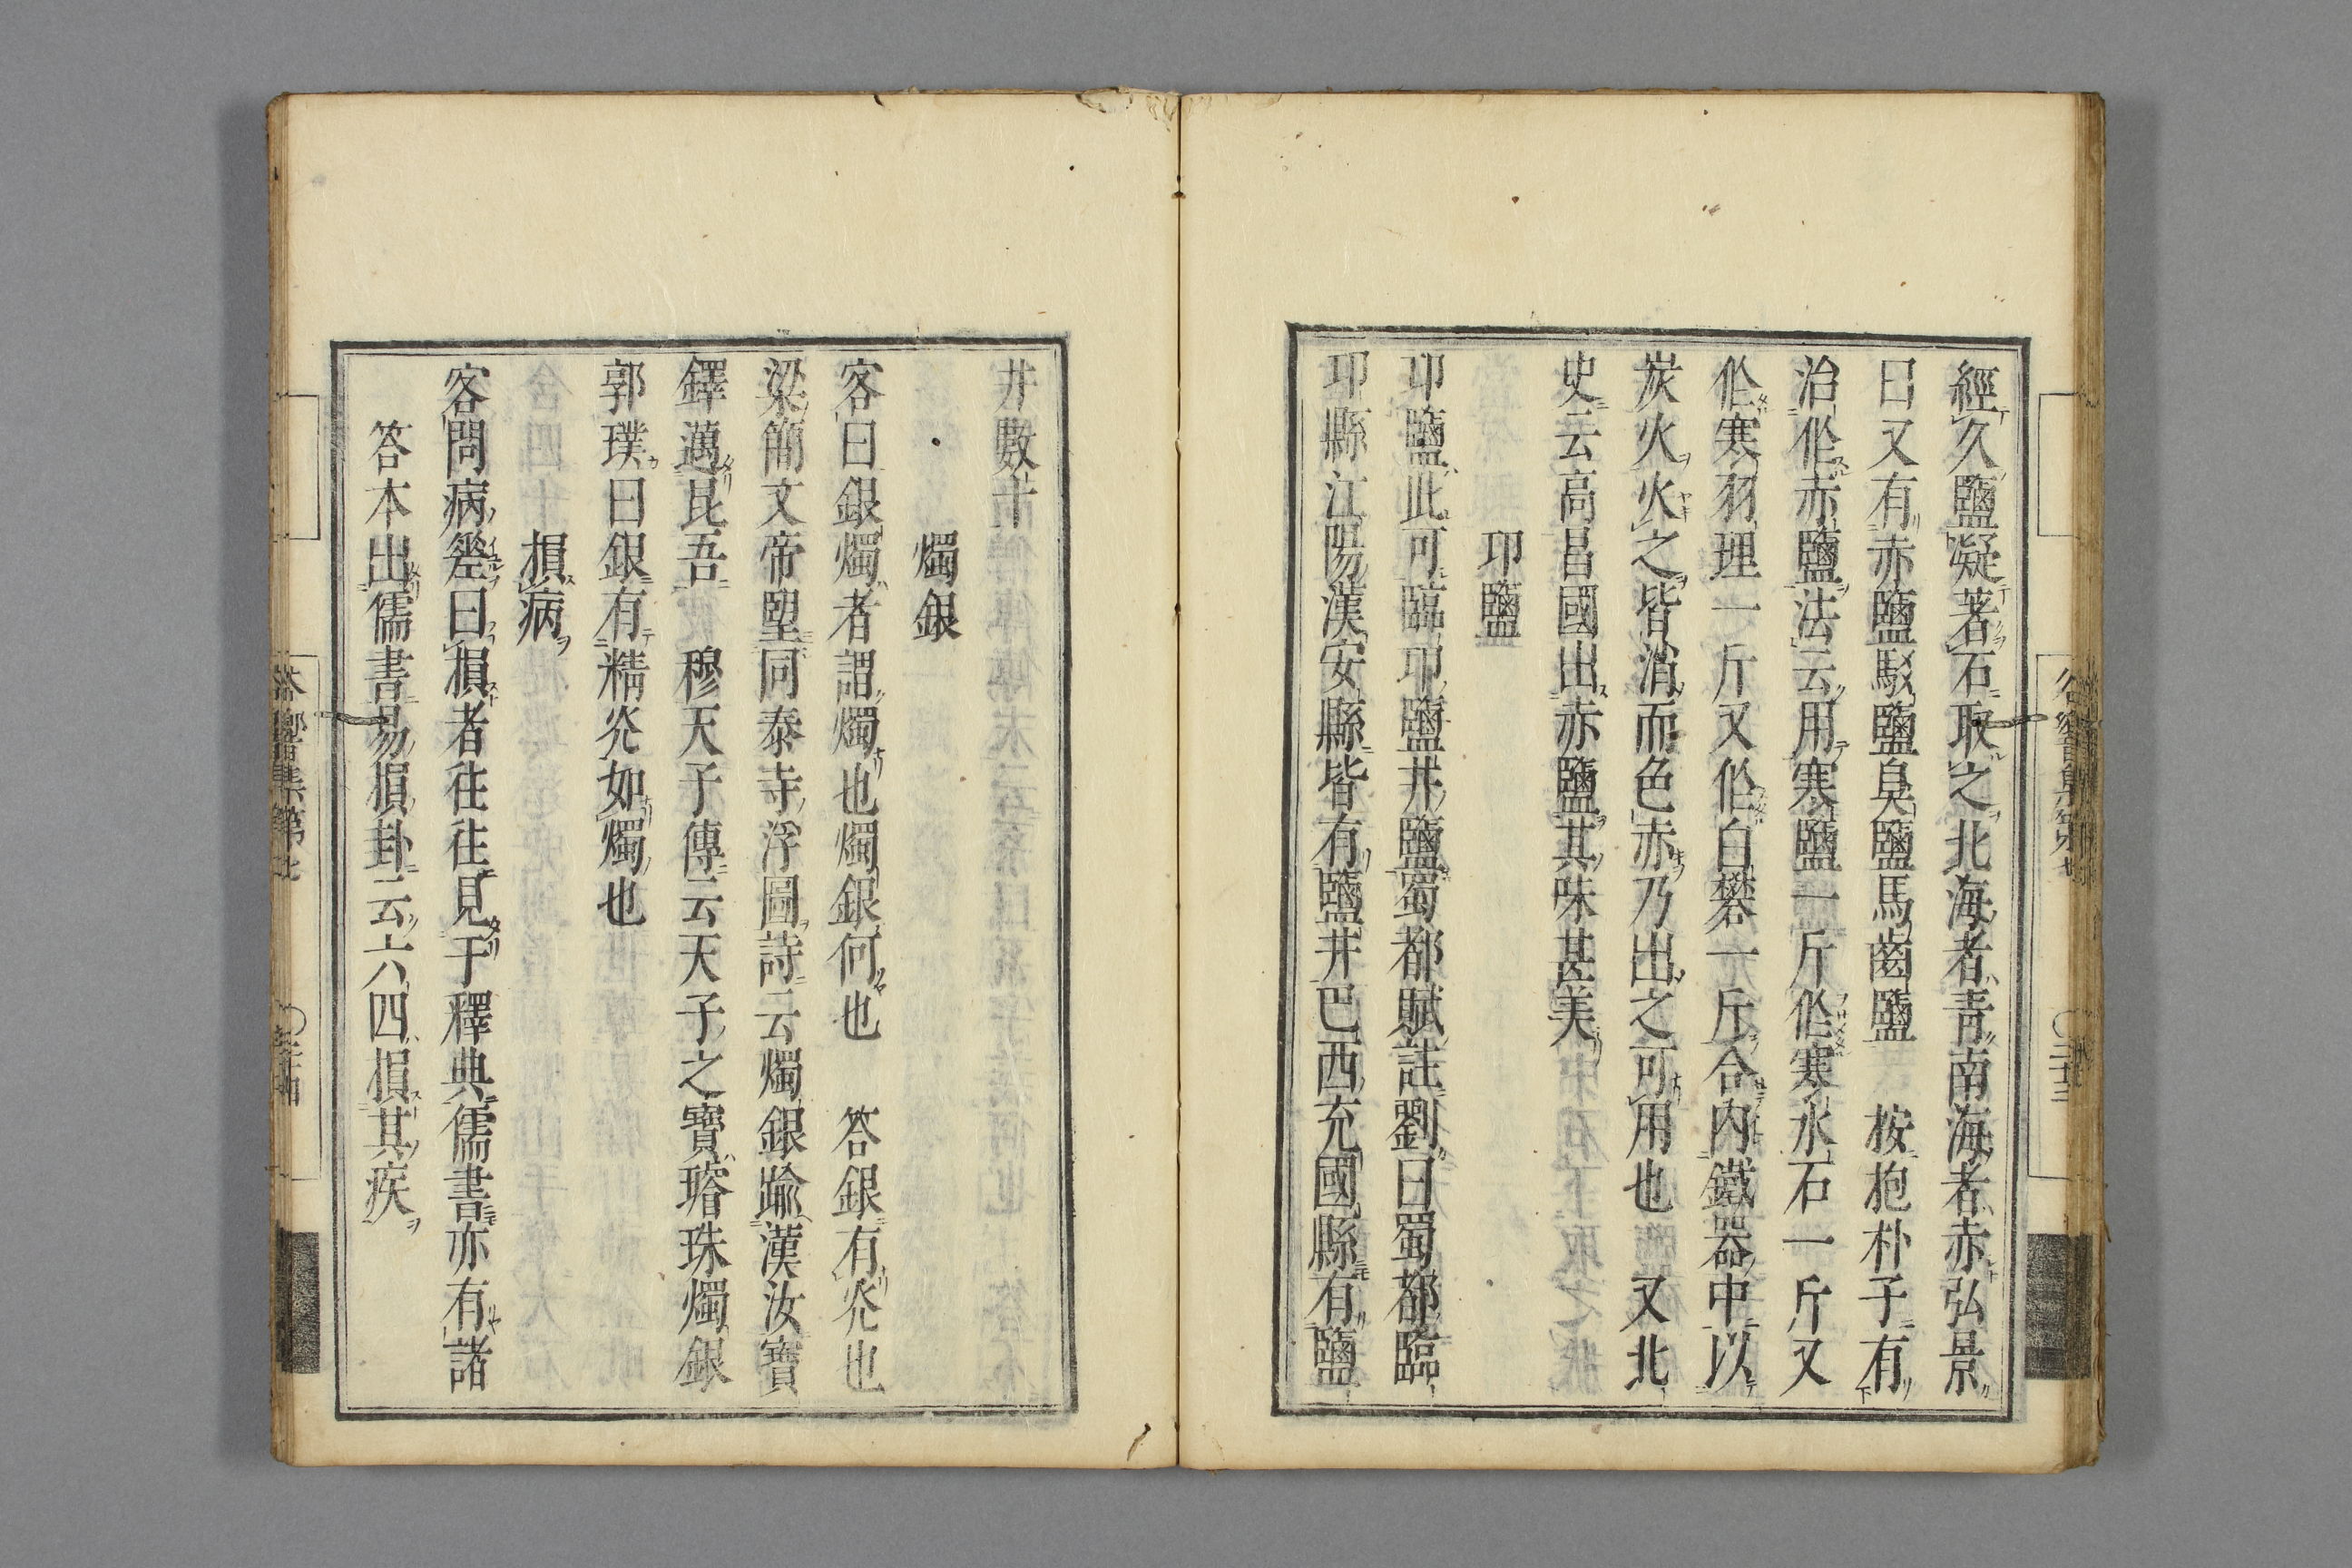 經久鹽凝著石取之北海者青南海者赤弘景
曰又有赤鹽駁鹽臭鹽馬齒鹽　按抱朴子有
治作赤鹽法云用寒鹽一斤作寒水石一斤又
作寒羽理一斤又作白礬一斤合內鐵器中以
炭火火之皆消而色赤乃出之可用也　又北
史云高昌國出赤鹽其味甚美
卭鹽
卭鹽此可臨卭鹽井鹽蜀都賦註劉曰蜀都臨
卭縣江陽漢安縣皆有鹽井巴西充國縣有鹽
井數十
燭銀
客曰銀燭者謂燭也燭銀何也　答銀有炗也
梁簡文帝望同泰寺浮圖詩云燭銀踰漢汝寶
鐸邁昆吾　穆天子傳云天子之寶璿珠燭銀
郭璞曰銀有精炗如燭也
損病
客問病瘥曰損者往往見于釋典儒書亦有諸
答本出儒書易損卦云六四損其疾